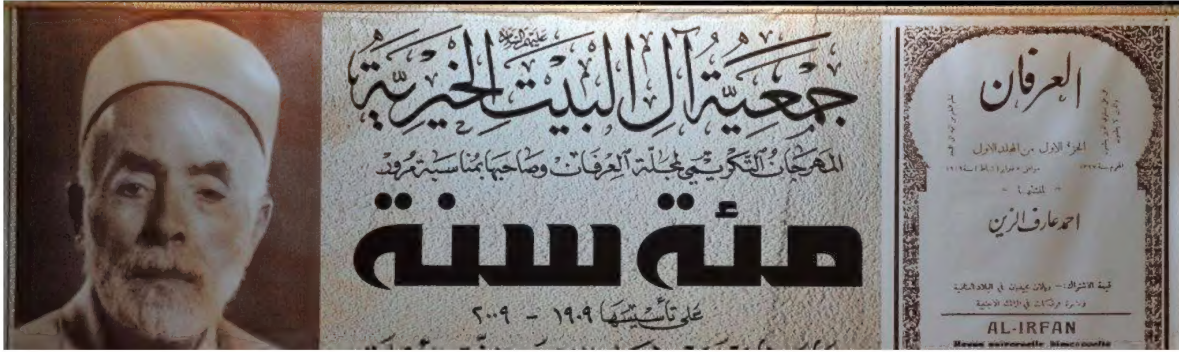 عليهم السلام
جمعية آل البيت الخيرية
المهرجان التكريمي لمجلة العرفان وصاحبها بمناسبة مرور
مئة سنة
على تأسيسها ١٩٠٩ - ٢٠٠٩
العرفان
الجزء الاول من المجلد الاول
لمنشئها
احمد عارف الزين
قيمة الاشتراك :- ريالان مجيديان في البلاد العثمانية
وعشرة فرنكات في الممالك الاجنبية
AL-IRFAN